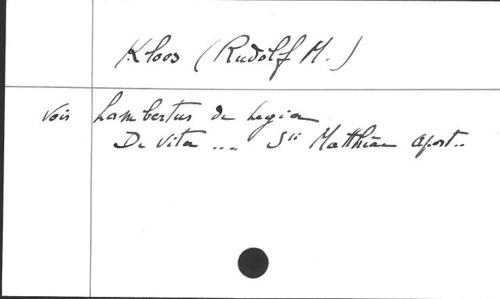 Kloos (Rudolf M.)
Voir Lambertus de Legia
De Vita ... Sti Matthiae Apost..